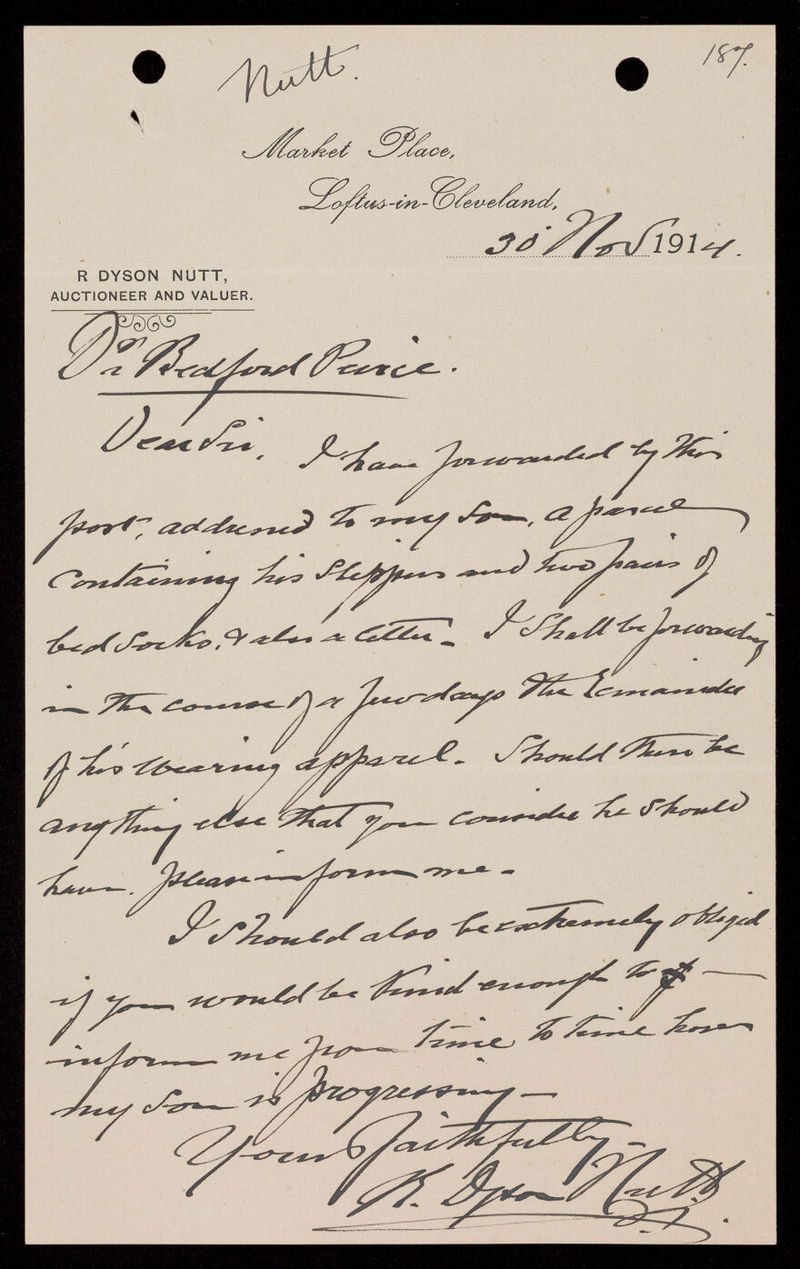 Nutt.
187.
Market Place,
Loftus-in-Cleveland,
30 Nov 1914.
R DYSON NUTT,
AUCTIONEER AND VALUER.
Dr Bedford Pierce.
Dear Sir, I have forwarded by this
post, addressed to my son, a parcel
containing his slippers and two pairs of
bed socks, & also a letter - I shall be forwarding
in the course of a few days the remainder
of his wearing apparel - Should there be
anything else that you consider he should
have, please inform me -
I should also be extremely obliged
if you would be kind enough to
inform me from time to time how
my son is progressing -
Yours faithfully -
R. Dyson Nutt